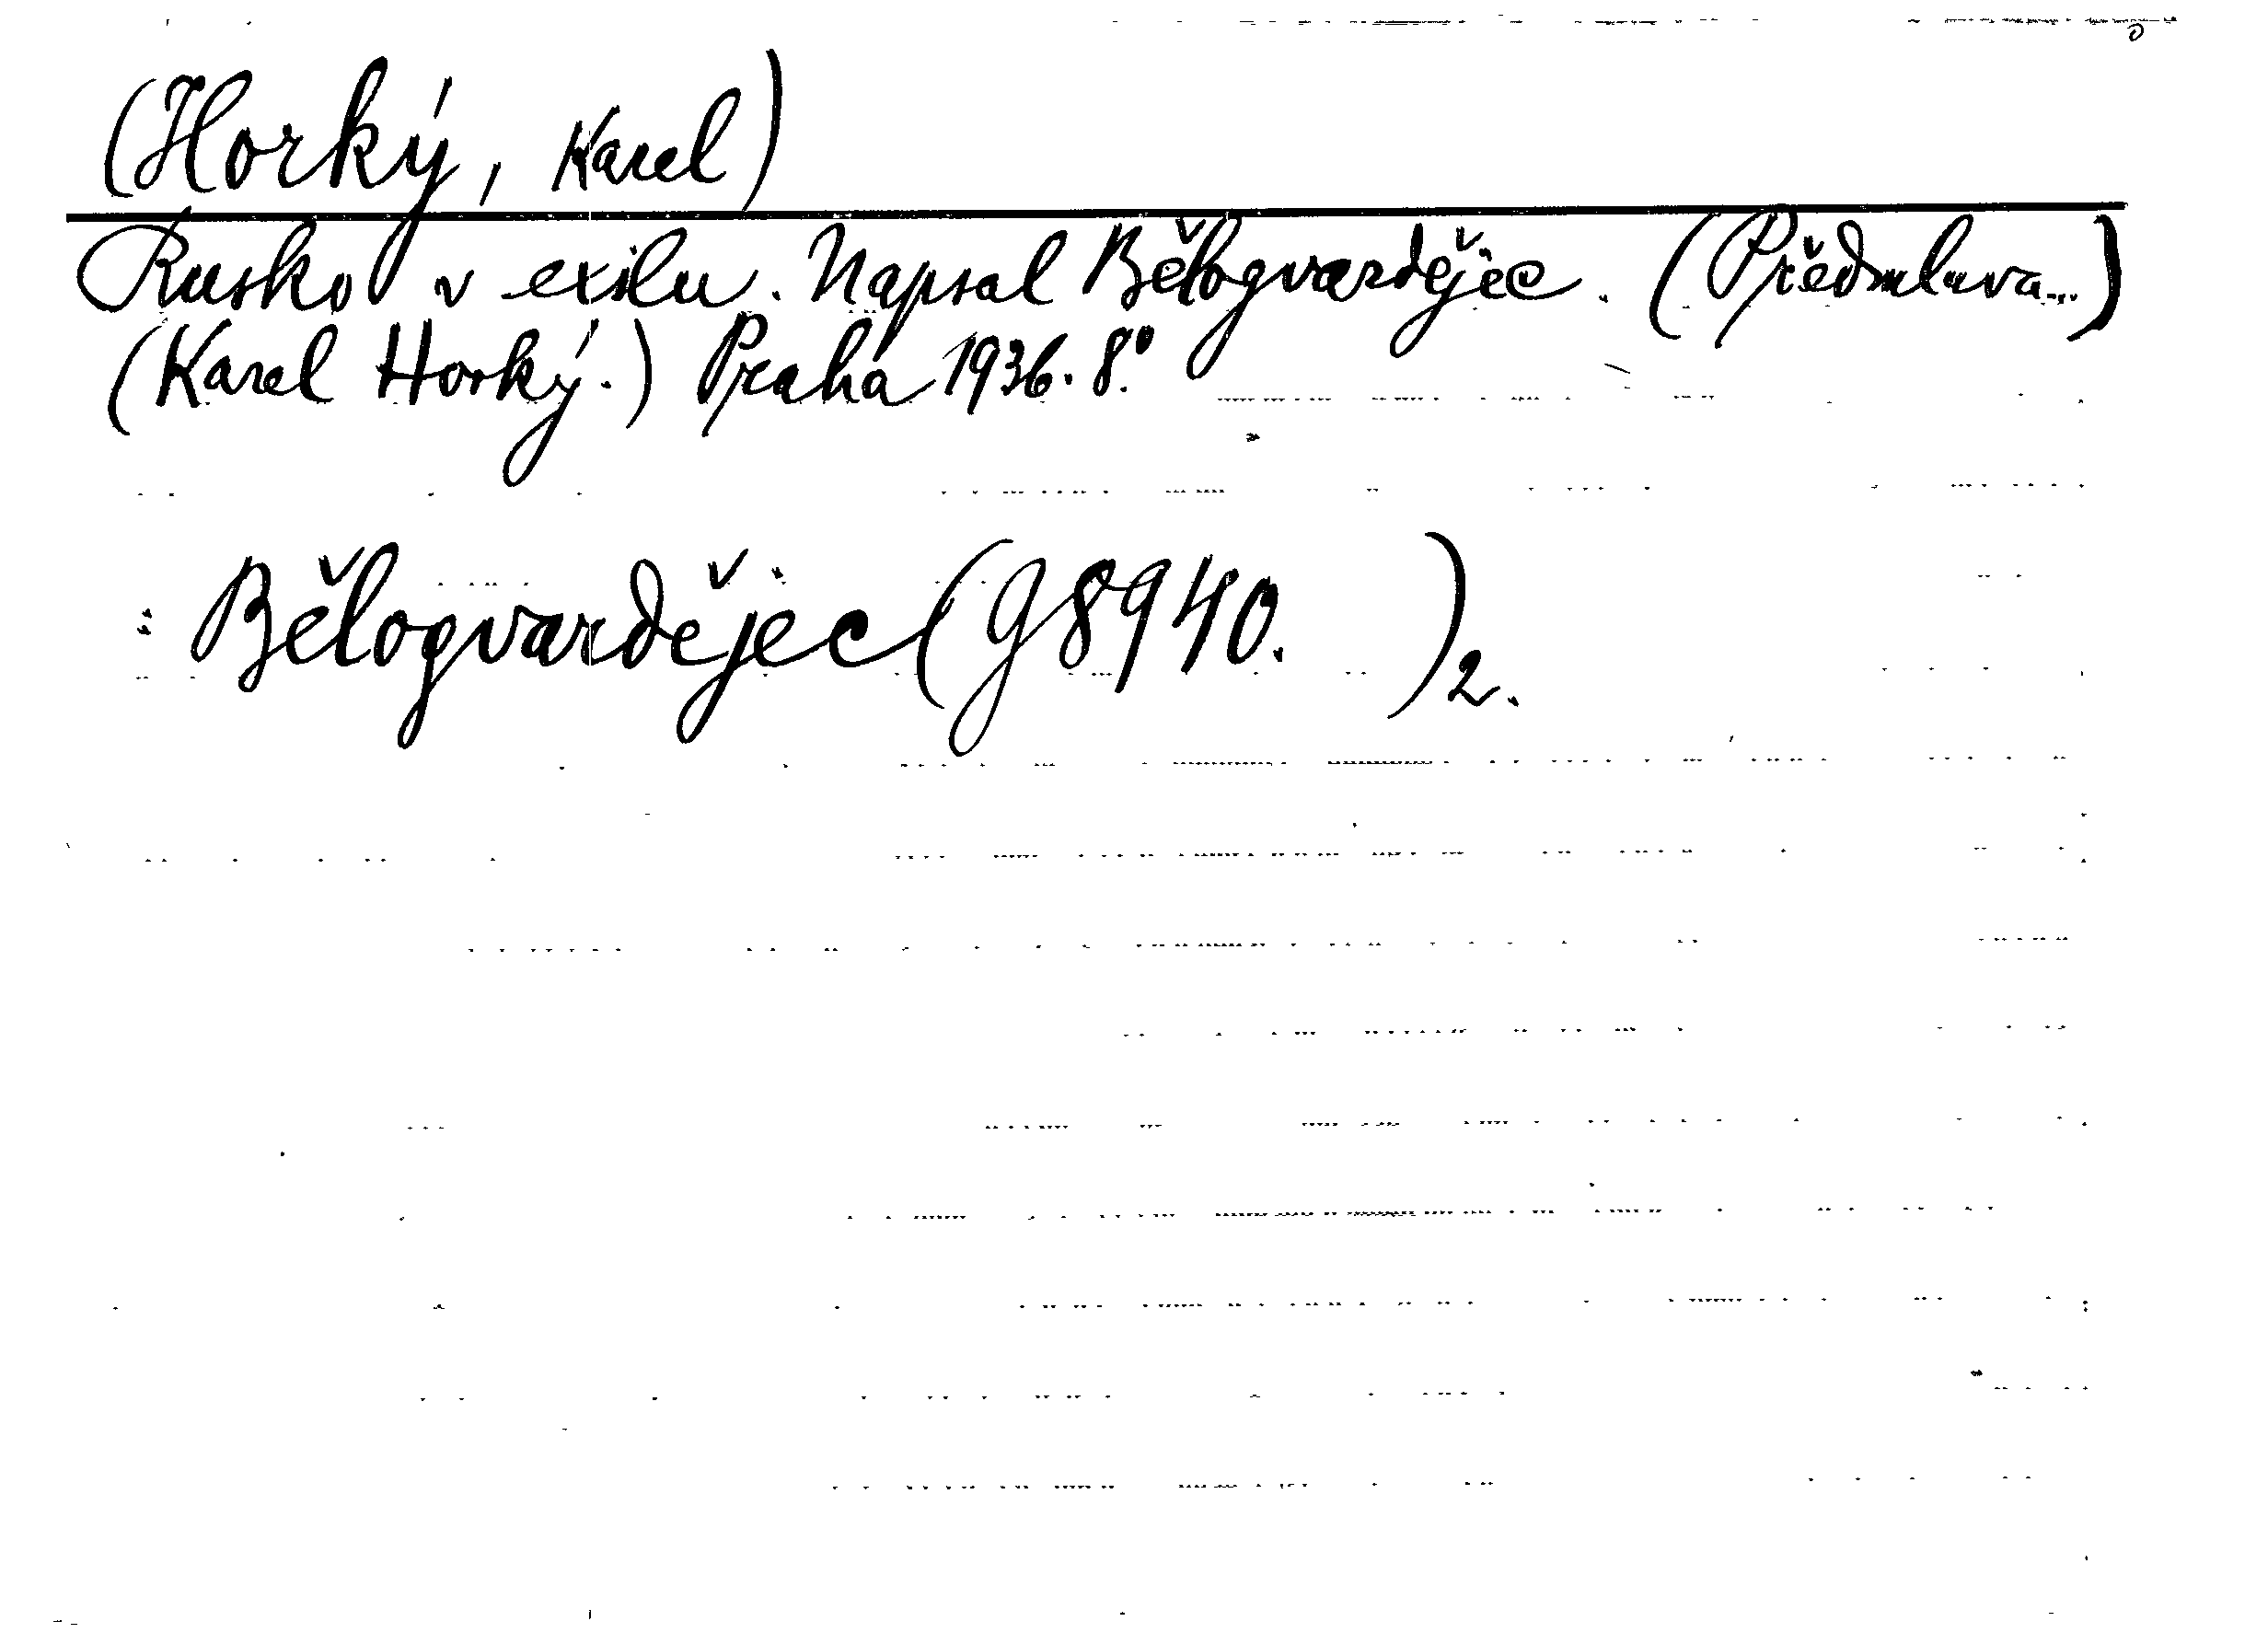 (Horký, Karel)
Rusko v exilu. Napsal Bělogvardějec. (Předmluva...)
(Karel Horký.) Praha 1936. 8°.
: Bělogvardějec (g 8940. )2.